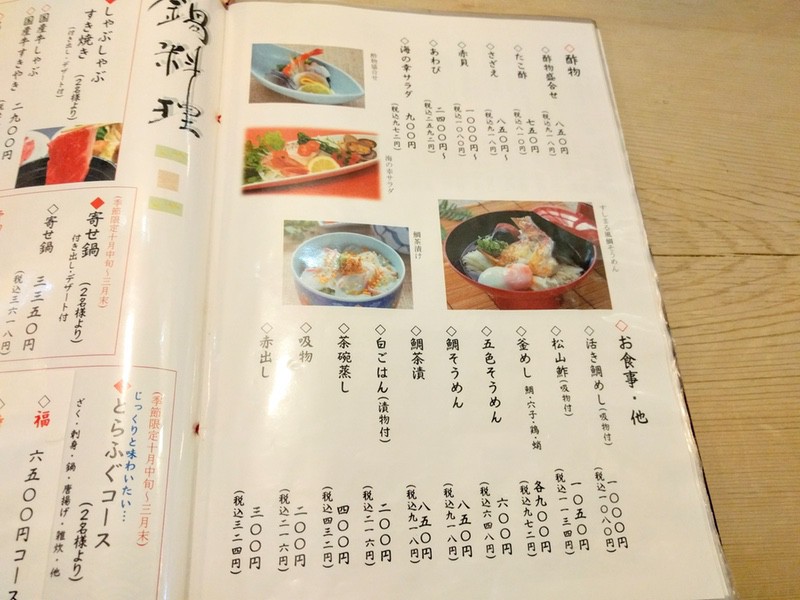 ◇酢物
◇酢物盛合せ 八五〇円
(税込九一八円)
◇たこ酢 七五〇円
(税込八一〇円)
◇さざえ 八五〇円〜
(税込九一八円)
◇赤貝 一〇〇〇円〜
(税込一〇八〇円)
◇あわび 二四〇〇円〜
(税込二五九二円)
◇海の幸サラダ 九〇〇円
(税込九七二円)
酢物盛合せ
海の幸サラダ
すしまる風鯛そうめん
鯛茶漬け
◇お食事・他
◇活き鯛めし(吸物付) 一〇〇〇円
(税込一〇八〇円)
◇松山鮓(吸物付) 一〇五〇円
(税込一一三四円)
◇釜めし 鯛・穴子・鶏・蛸 各九〇〇円
(税込九七二円)
◇五色そうめん 六〇〇円
(税込六四八円)
◇鯛そうめん 八五〇円
(税込九一八円)
◇鯛茶漬 八五〇円
(税込九一八円)
◇白ごはん(漬物付) 二〇〇円
(税込二一六円)
◇茶碗蒸し 四〇〇円
(税込四三二円)
◇吸物 二〇〇円
(税込二一六円)
◇赤出し 三〇〇円
(税込三二四円)
鍋料理
◆しゃぶしゃぶ
すき焼き (2名様より)
(付き出し・デザート付)
◇国産牛しゃぶ
◇国産牛すきやき 二九〇〇円
(季節限定十月中旬〜三月末)
◆寄せ鍋 (2名様より)
付き出し・デザート付
◇寄せ鍋 三三五〇円
(税込三六一八円)
(季節限定十月中旬〜三月末)
じっくりと味わいたい…
◆とらふぐコース (2名様より)
ざく・刺身・鍋・唐揚げ・雑炊・他
◇福 六五〇〇円コース